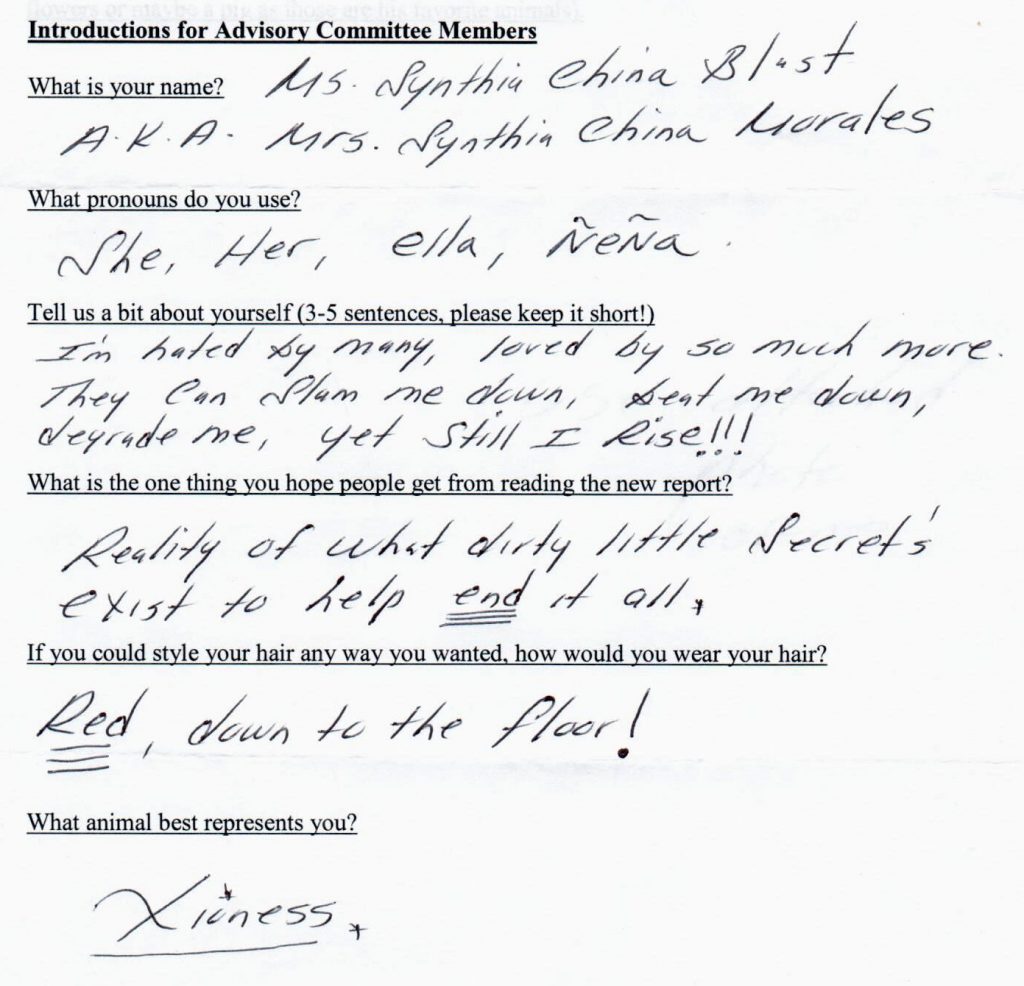 flowers or maybe a pig as those are his favorite animals).
Introductions for Advisory Committee Members
What is your name? Ms. Synthia China Blast
A.K.A. Mrs. Synthia China Morales
What pronouns do you use?
She, Her, ella, Ñeña.
Tell us a bit about yourself (3-5 sentences, please keep it short!)
I'm hated by many, loved by so much more.
They Can Slam me down, beat me down,
degrade me, yet Still I Rise!!!
What is the one thing you hope people get from reading the new report?
Reality of what dirty little Secret's
exist to help end it all.
If you could style your hair any way you wanted, how would you wear your hair?
Red, down to the floor!
What animal best represents you?
Lioness.